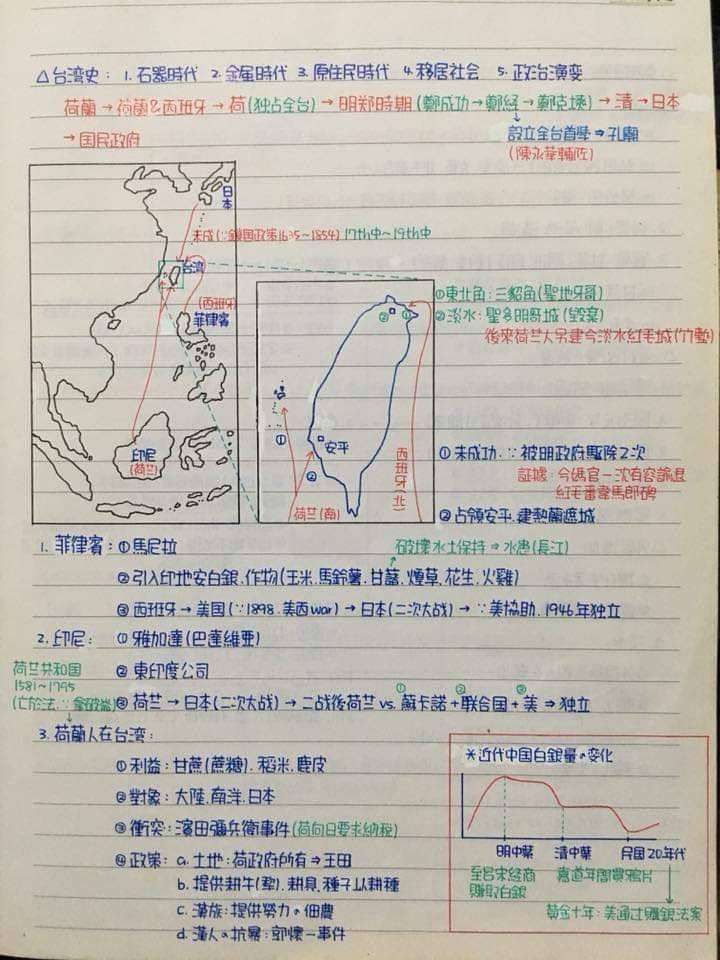 △台湾史: 1.石器時代 2.金属時代 3.原住民時代 4.移居社会 5.政治演变
荷蘭→荷蘭&西班牙→荷(独占全台)→明郑時期(鄭成功→鄭経→鄭克塽)→清→日本
→国民政府
設立全台首學⇒孔廟
(陳永華輔佐)
日本
未成(∵鎖国政策1635~1854) 17th中~19th中
台湾
(西班牙)
菲律賓
印尼
(荷兰)
①東北角:三貂角(聖地牙哥)
②淡水:聖多明哥城(毀棄)
後來荷兰人另建今淡水紅毛城(竹塹)
② ①
①
安平
②
荷兰(南)
西班牙(北)
①未成功.∵被明政府驅除2次
証據:今媽宮一次有容諭退
紅毛番韋馬郎碑
②占领安平.建熱蘭遮城
1. 菲律賓:①馬尼拉
破壞水土保持⇒水患(長江)
②引入印地安白銀.作物(玉米.馬鈴薯.甘藷.煙草.花生.火雞)
③西班牙→美国(∵1898.美西war)→日本(二次大战)→∵美協助.1946年独立
2. 印尼: ①雅加達(巴達維亜)
荷兰共和国
1581~1795
(亡於法.∵拿破崙)
②東印度公司
③荷兰→日本(二次大战)→二战後荷兰vs.①蘇卡諾+③联合国+②美⇒独立
3. 荷蘭人在台湾:
①利益:甘蔗(蔗糖).稻米.鹿皮
②對象:大陸.南洋.日本
③衝突:濱田彌兵衛事件(荷向日要求納稅)
④政策: a.土地:荷政府所有⇒王田
b.提供耕牛(犂).耕具.種子以耕種
c.漢族:提供勞力の佃農
d.漢人の抗暴:郭懷一事件
*近代中国白銀量の变化
明中葉 清中葉 民国20年代
至呂宋経商
賺取白銀
嘉道年間買鴉片
黄金十年:美通过購銀法案